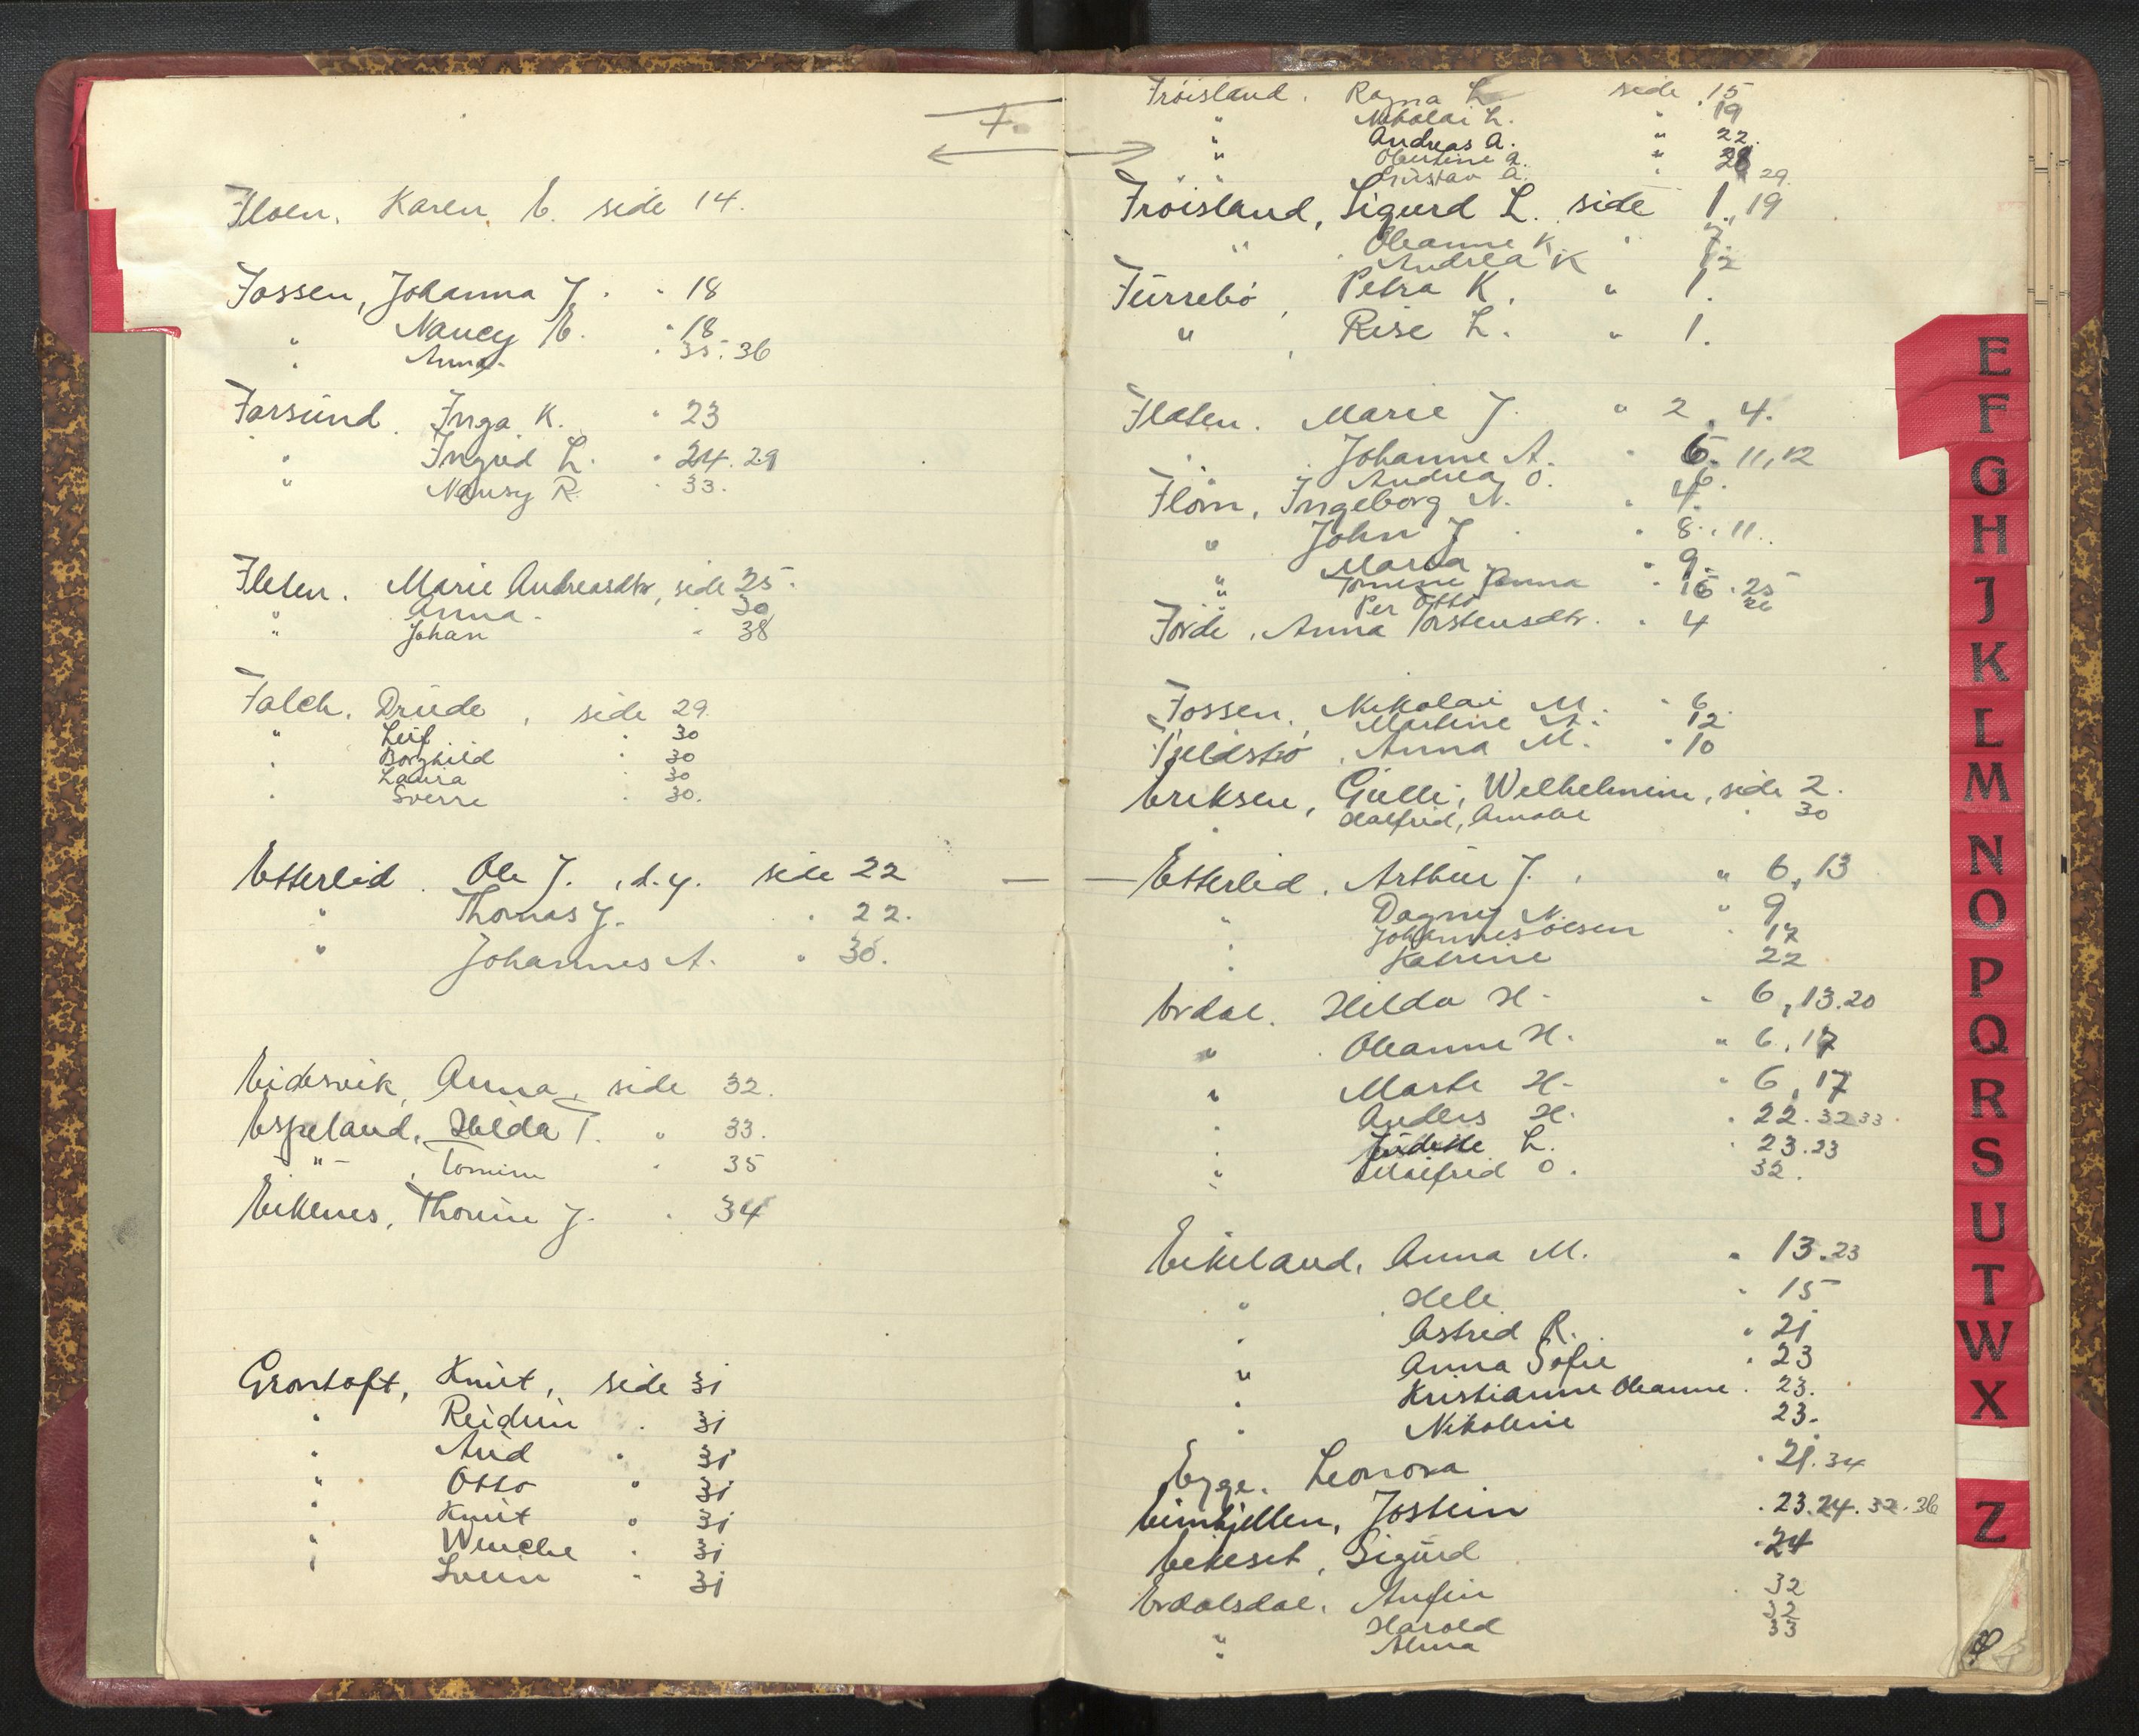 F.
Floen, Karen E. side 14.
Fossen, Johanna J. " 18
" Nancy E. " 18
" Anna. " 35. 36
Farsund. Inga K. " 23
" Ingrid L. " 24. 29
" Nansy R. " 33.
Fleten. Marie Andreasdtr, side 25.
" Anna. " 30
" Johan " 38
Falch, Drude, side 29.
" Leif " 30
" Borghild " 30
Laura " 30
" Sverre " 30.
Etterlid. Ole J. , d.y. side 22
" Thomas J. " 22.
" Johannes A. " 30.
Eidesvik, Anna, side 32.
Espeland, Hilda T. " 33.
" , Tomine " 35
Eikenes, Thorine J. " 34
Grontoft, Knut, side 31
" Reidun " 31
" Arid " 31
" Otto " 31
" Knut " 31
" Wenche " 31
" Svein " 31
Fröisland. Ragna L. side 15
" Nikolai L. " 19
" Andreas A. " 22.
" Obertine A. " 28
" Gustav A. " 29.
Fröisland, Sigurd L. side 1, 19
" Oleanne K. "
Andrea K 12
Fürrebö, Petra K. " 1.
" , Rise L. " 1.
Flaten. Marie J. " 2, 4.
" Johanne A. " 6. 11, 12
" Andrea O. 6.
Flom, Ingeborg N. " 4.
" John J. " 8., 11.
Maria " 9.
" Tomine Janna " 16. 25
" Per Otto 26
Förde, Anna Torstensdtr. " 4
Fossen, Nikolai M. " 6.
" Martine A. " 12
Fjeldsbö, Anna M. " 10
Eriksen, Gulli, Welhelmine, side 2.
" Halfrid, Amalie " 30
Etterlid, Arthur J. , " 6, 13
" Dagny N. " 9
" Johannes Olsen " 17
" Katrine 22
Erdal. Hilda H. " 6, 13. 20
" . Oleanne H. " 6, 17
" Marte H. " 6, 17
" Anders H. " 22. 32 33.
" Judithe L. " 23. 23
" Malfrid O. 32.
Eikeland, Anna M. " 13. 23
" Hele " 15
" Astrid R. " 21
" Anna Sofie " 23
" Kristianne Oleanne. 23.
" Nikoline 23.
Eyge. Leonora " 21. 34
Eimhjellen, Jostein " 23. 24. 32. 36
Eikeset, Sigurd " 24
Erdalsdal. Anfin " 32
Harold 32
" Alma 33
E
F
G
H
J
K
L
M
N
O
P
Q
R
S
U
T
W
X
Z